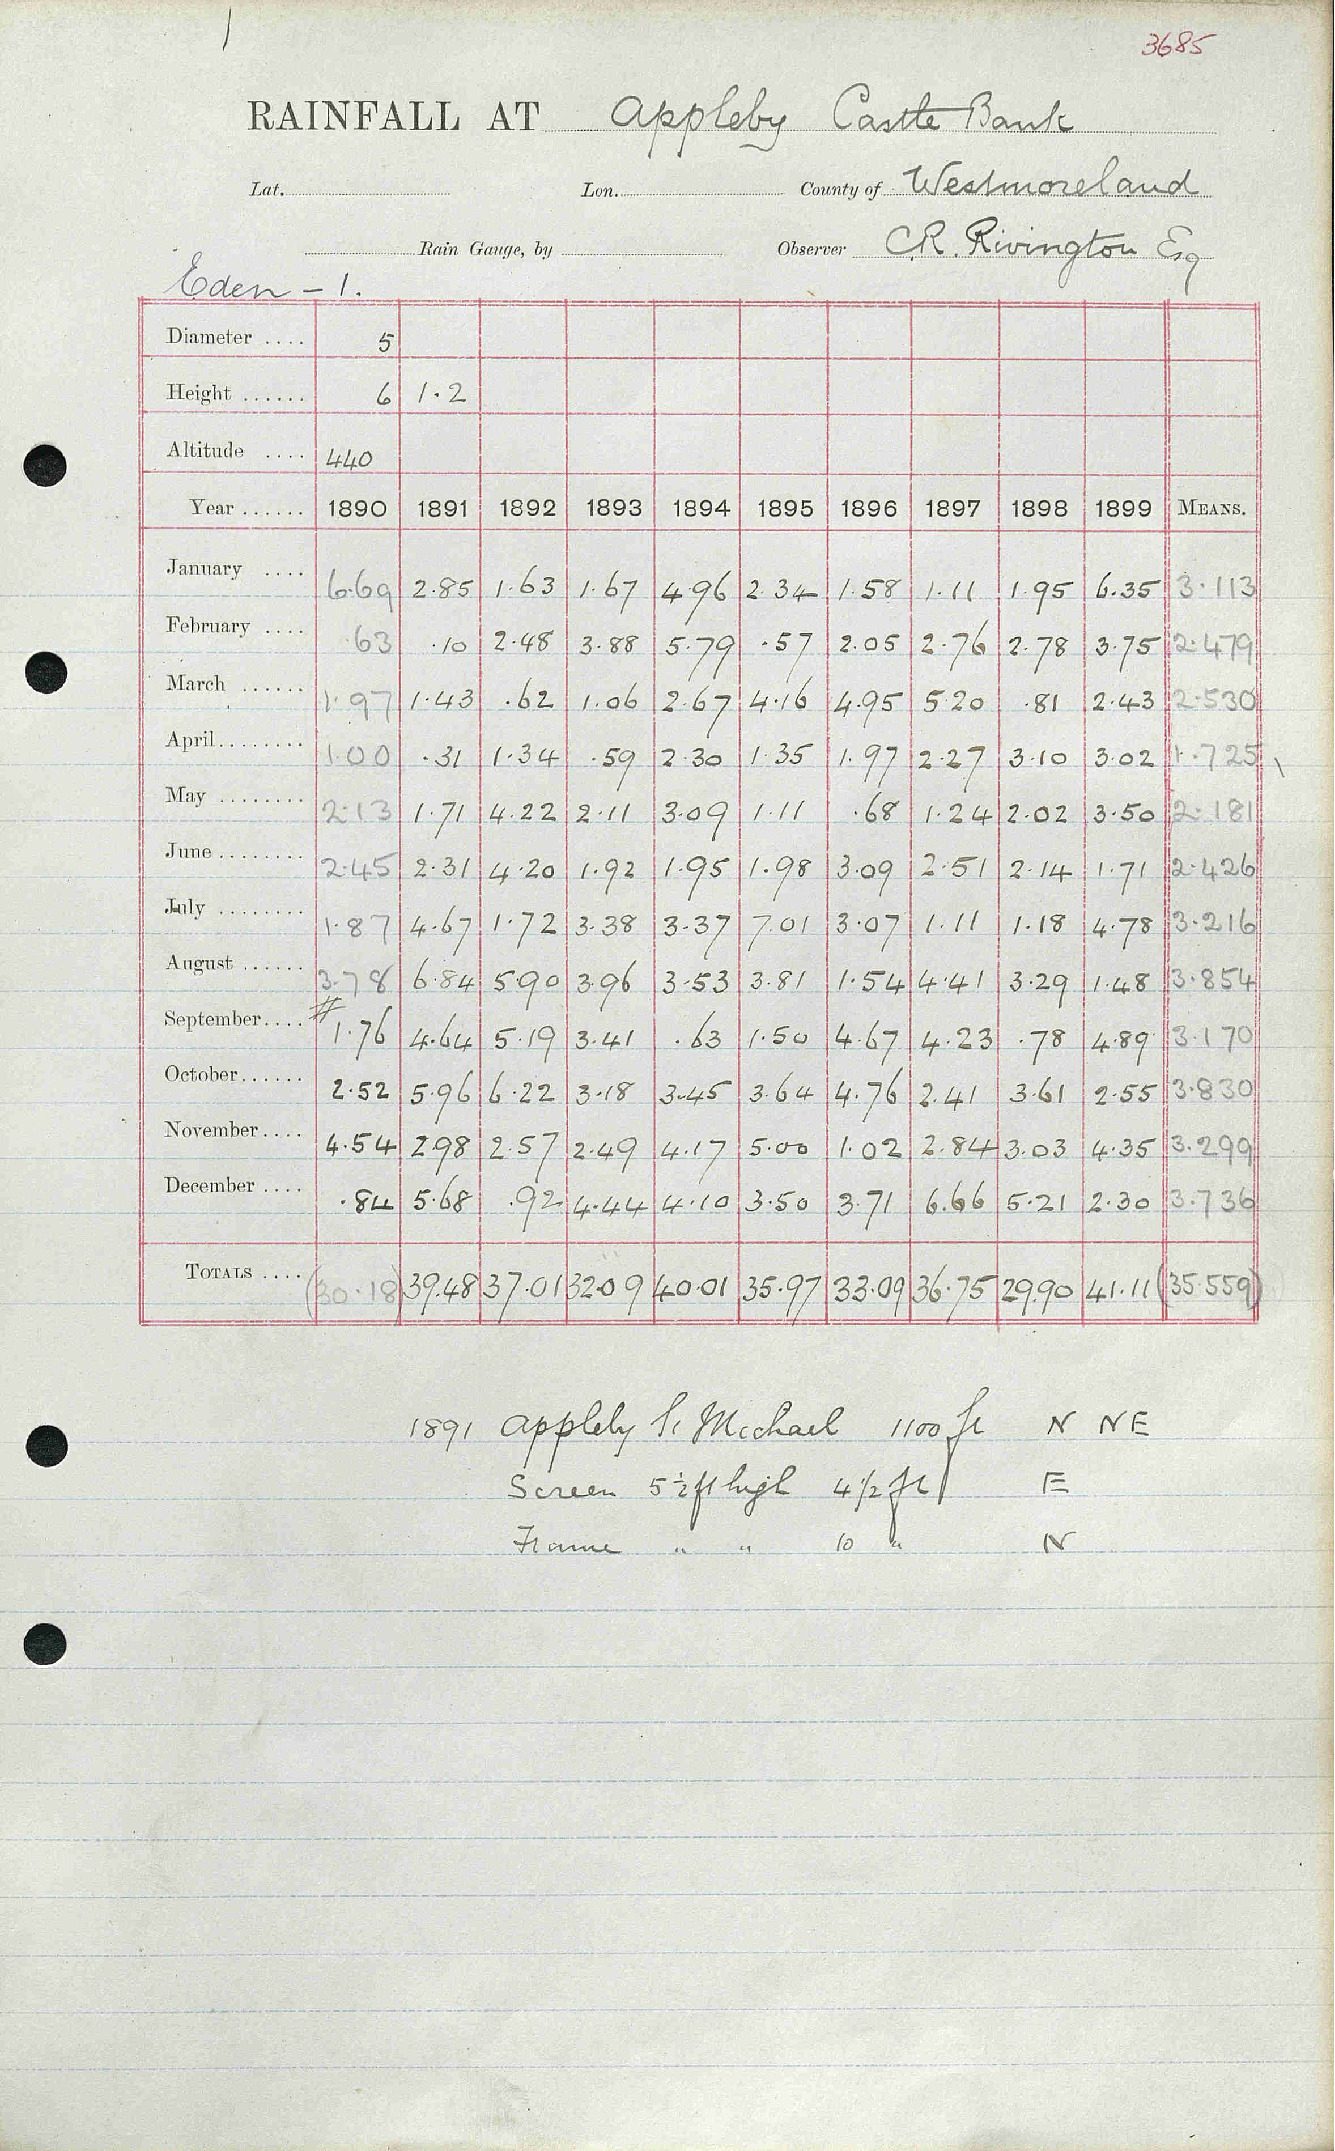 3685
RAINFALL AT Appleby Castle Bank
Lat. Lon. County of Westmoreland
Rain Gauge, by Observer C.R. Rivington Esq
Eden - 1.
Diameter .... 5
Height ...... 6 1.2
Altitude .... 440
Year ...... 1890 1891 1892 1893 1894 1895 1896 1897 1898 1899 MEANS.
January .... 6.69 2.85 1.63 1.67 4.96 2.34 1.58 1.11 1.95 6.35 3.113
February .... .63 .10 2.48 3.88 5.79 .57 2.05 2.76 2.78 3.75 2.479
March ...... 1.97 1.43 .62 1.06 2.67 4.16 4.95 5.20 .81 2.43 2.530
April........ 1.00 .31 1.34 .59 2.30 1.35 1.97 2.27 3.10 3.02 1.725
May ........ 2.13 1.71 4.22 2.11 3.09 1.11 .68 1.24 2.02 3.50 2.181
June........ 2.45 2.31 4.20 1.92 1.95 1.98 3.09 2.51 2.14 1.71 2.426
July ........ 1.87 4.67 1.72 3.38 3.37 7.01 3.07 1.11 1.18 4.78 3.216
August ...... 3.78 6.84 5.90 3.96 3.53 3.81 1.54 4.41 3.29 1.48 3.854
September.... # 1.76 4.64 5.19 3.41 .63 1.50 4.67 4.23 .78 4.89 3.170
October...... 2.52 5.96 6.22 3.18 3.45 3.64 4.76 2.41 3.61 2.55 3.830
November.... 4.54 2.98 2.57 2.49 4.17 5.00 1.02 2.84 3.03 4.35 3.299
December .... .84 5.68 .92 4.44 4.10 3.50 3.71 6.66 5.21 2.30 3.736
TOTALS .... (30.18) 39.48 37.01 32.09 40.01 35.97 33.09 36.75 29.90 41.11 (35.559)
1891 Appleby St Michael 1100 ft N NE
Screen 5½ ft high 4½ ft E
Frame " " 10 " N